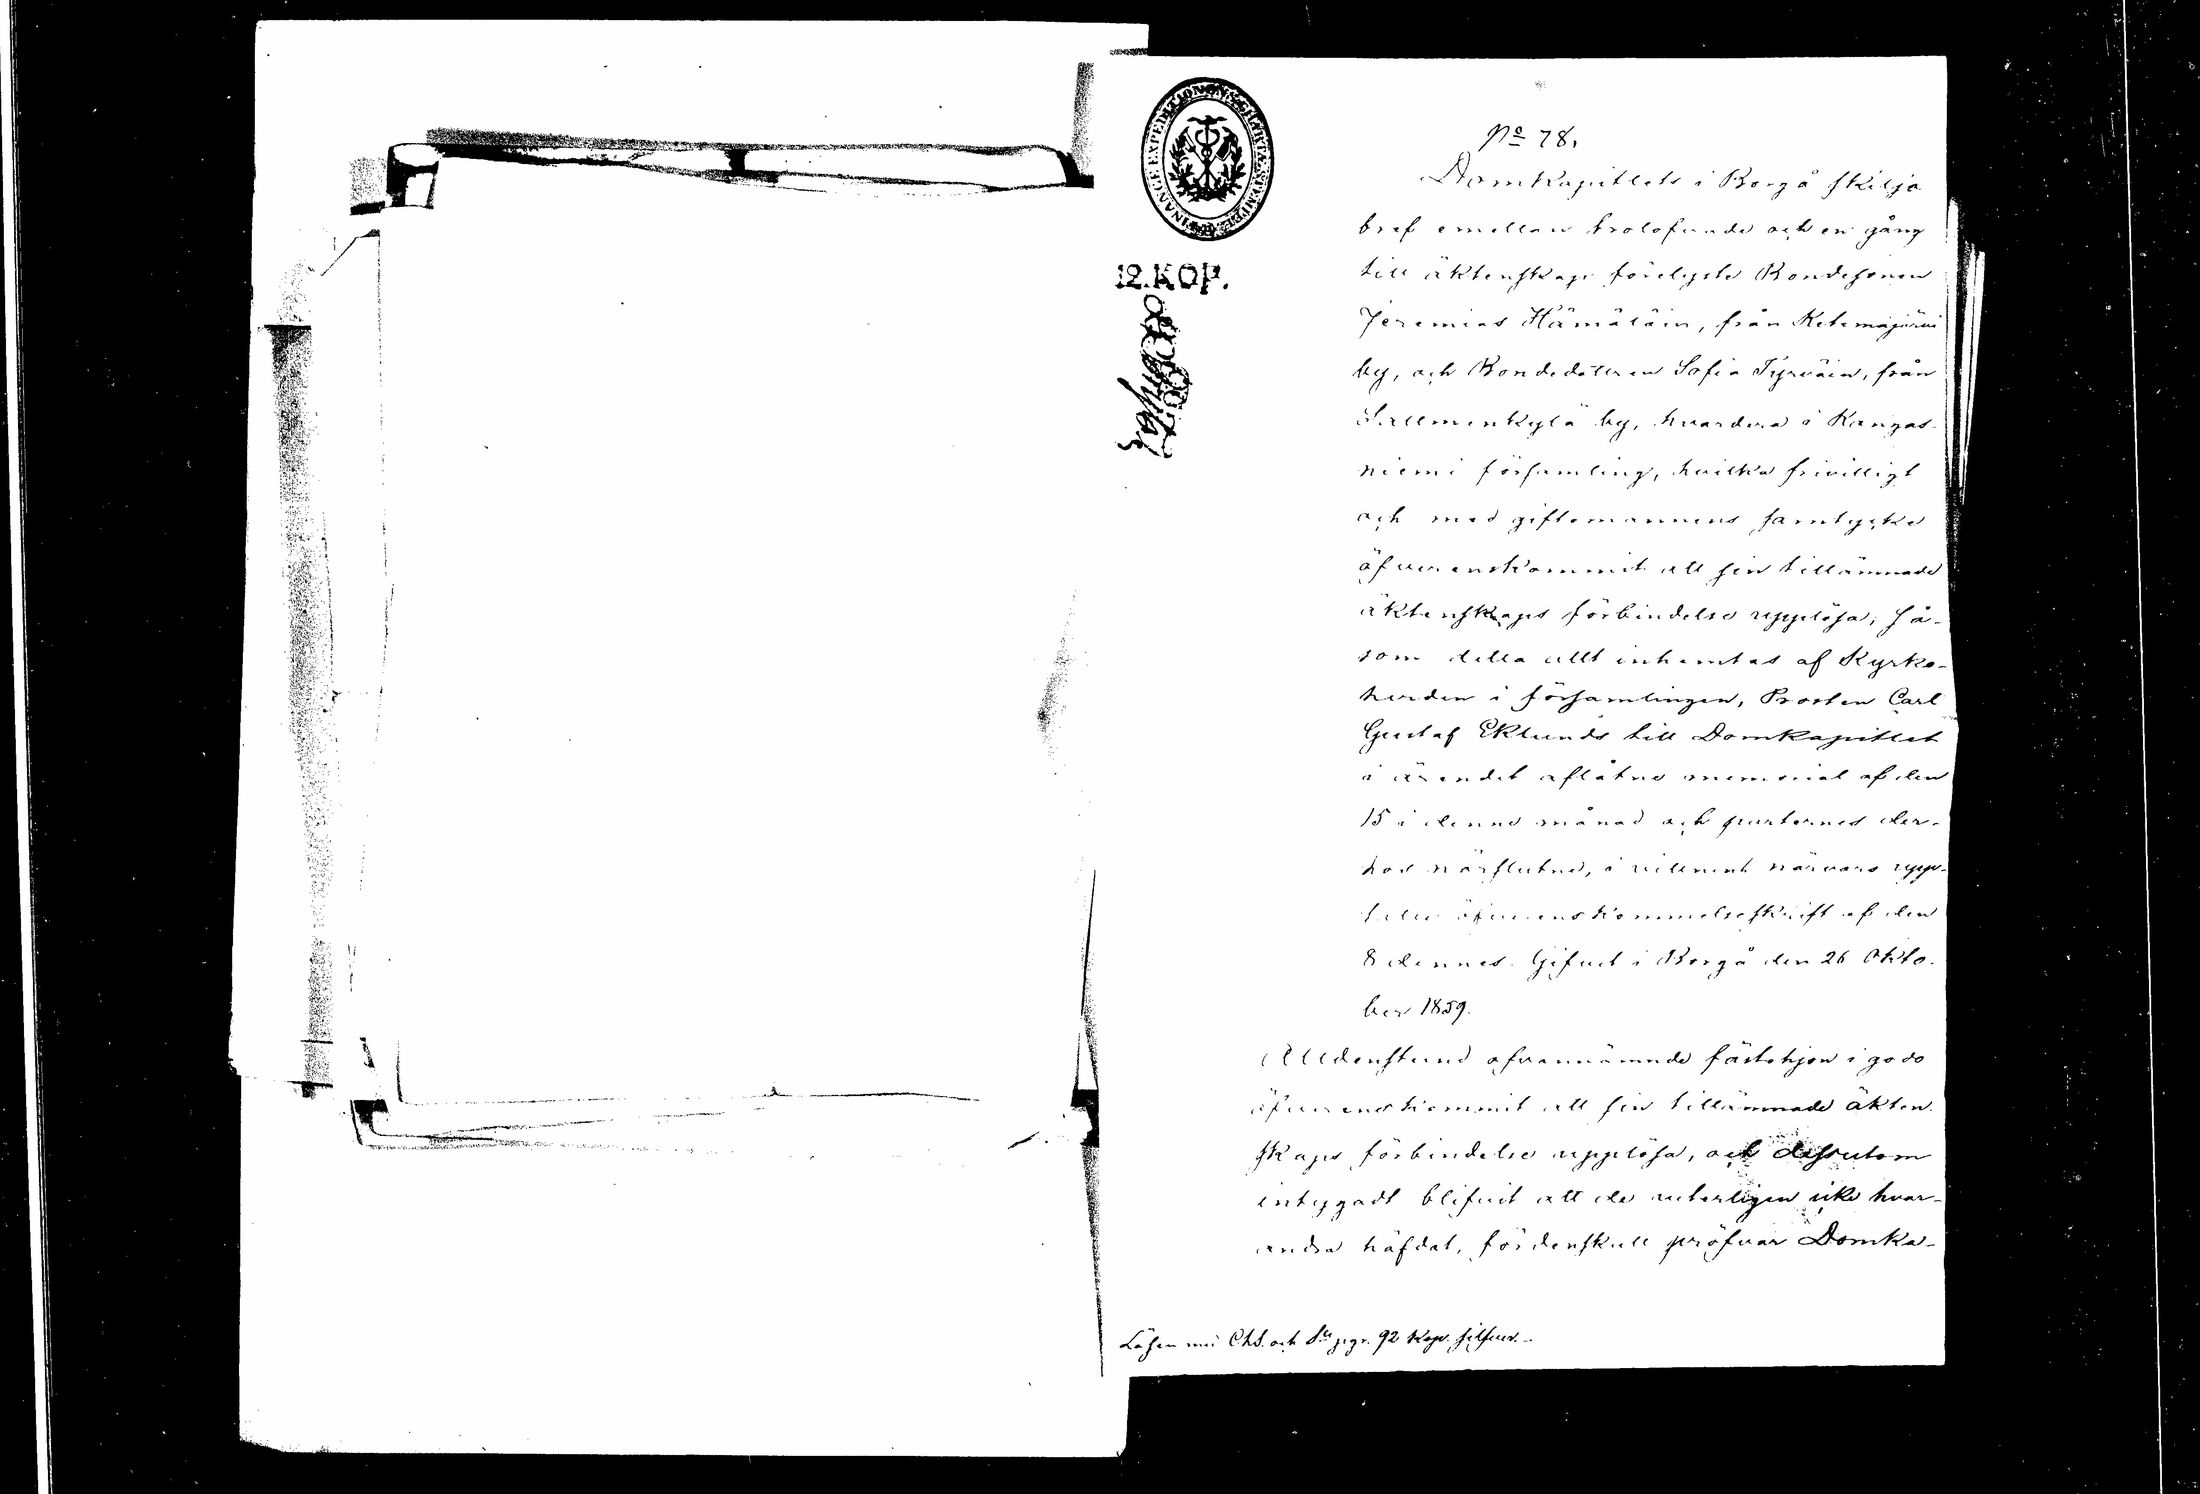 FINANCE EXPEDITIONENS CHARTÆ STEMPEL
No 78.
Domkapitlets i Borgå skiljo
12.KOP.
bref emellan trolofvade och en gång
till äktenskap förelyste Bondesonen
Jeremias Hämäläin, från Ketemäjärvi
by, och Bondedottren Sofia Tyrväin, från
Salmenkylä by, hvardera i Kangas-
niemi församling, hvilka frivilligt
och med giftomannens samtycke
öfverenskommit att sin tillämnade
äktenskaps förbindelse upplösa; så-
som detta allt inhemtas af Kyrko-
herden i församlingen, Prosten Carl
Gustaf Eklunds till Domkapitlet
i ärendet aflåtne memorial af den
15 i denne månad och parternes der-
hos närslutne, i vittnens närvaro upp-
satte öfverenskommelseskrift af den
8 dennes. Gifvet i Borgå den 26 Okto-
ber 1859.
Alldenstund ofvannämnde fästehjon i godo
öfverenskommit att sin tillämnade äkten-
skaps förbindelse upplösa, och dessutom
intygadt blifvit att de veterligen icke hvar-
andra häfdat, fördenskull pröfvar Domka-
Lösen med Chs. och pgr. 92 Kop. silfver.